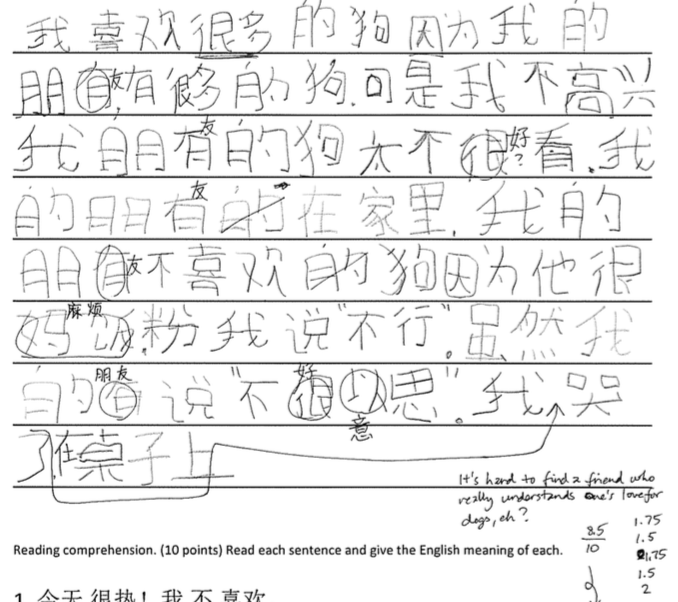 我喜欢很多的狗因为我的
朋有友有很多的狗.可是我不高兴
我朋有友的狗太不很好?看.我
的朋有友的在家里.我的
朋有友不喜欢的狗因为他很
妈饭麻烦.我说"不行"。虽然我
的有朋友说"不很好以意思"。我哭
了在桌子上
It's hard to find a friend who
really understands one's love for
dogs, eh?
8.5
10
1.75
1.5
1.75
1.5
2
Reading comprehension. (10 points) Read each sentence and give the English meaning of each.
1. 今天 很热！ 我 不 喜欢